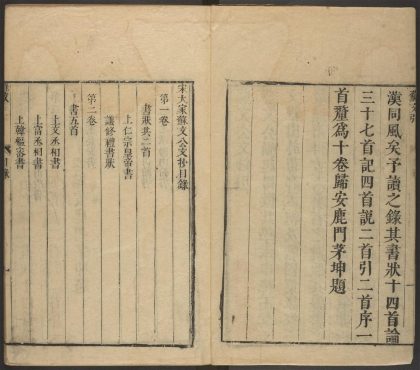 漢同風矣予讀之錄其書狀十四首論
三十七首記四首說二首引二首序一
首釐為十卷歸安鹿門茅坤題
宋大家蘇文公文抄目錄
第一卷
書狀共二首
上仁宗皇帝書
議修禮書狀
第二卷
書五首
上文丞相書
上富丞相書
上韓樞密書
目錄